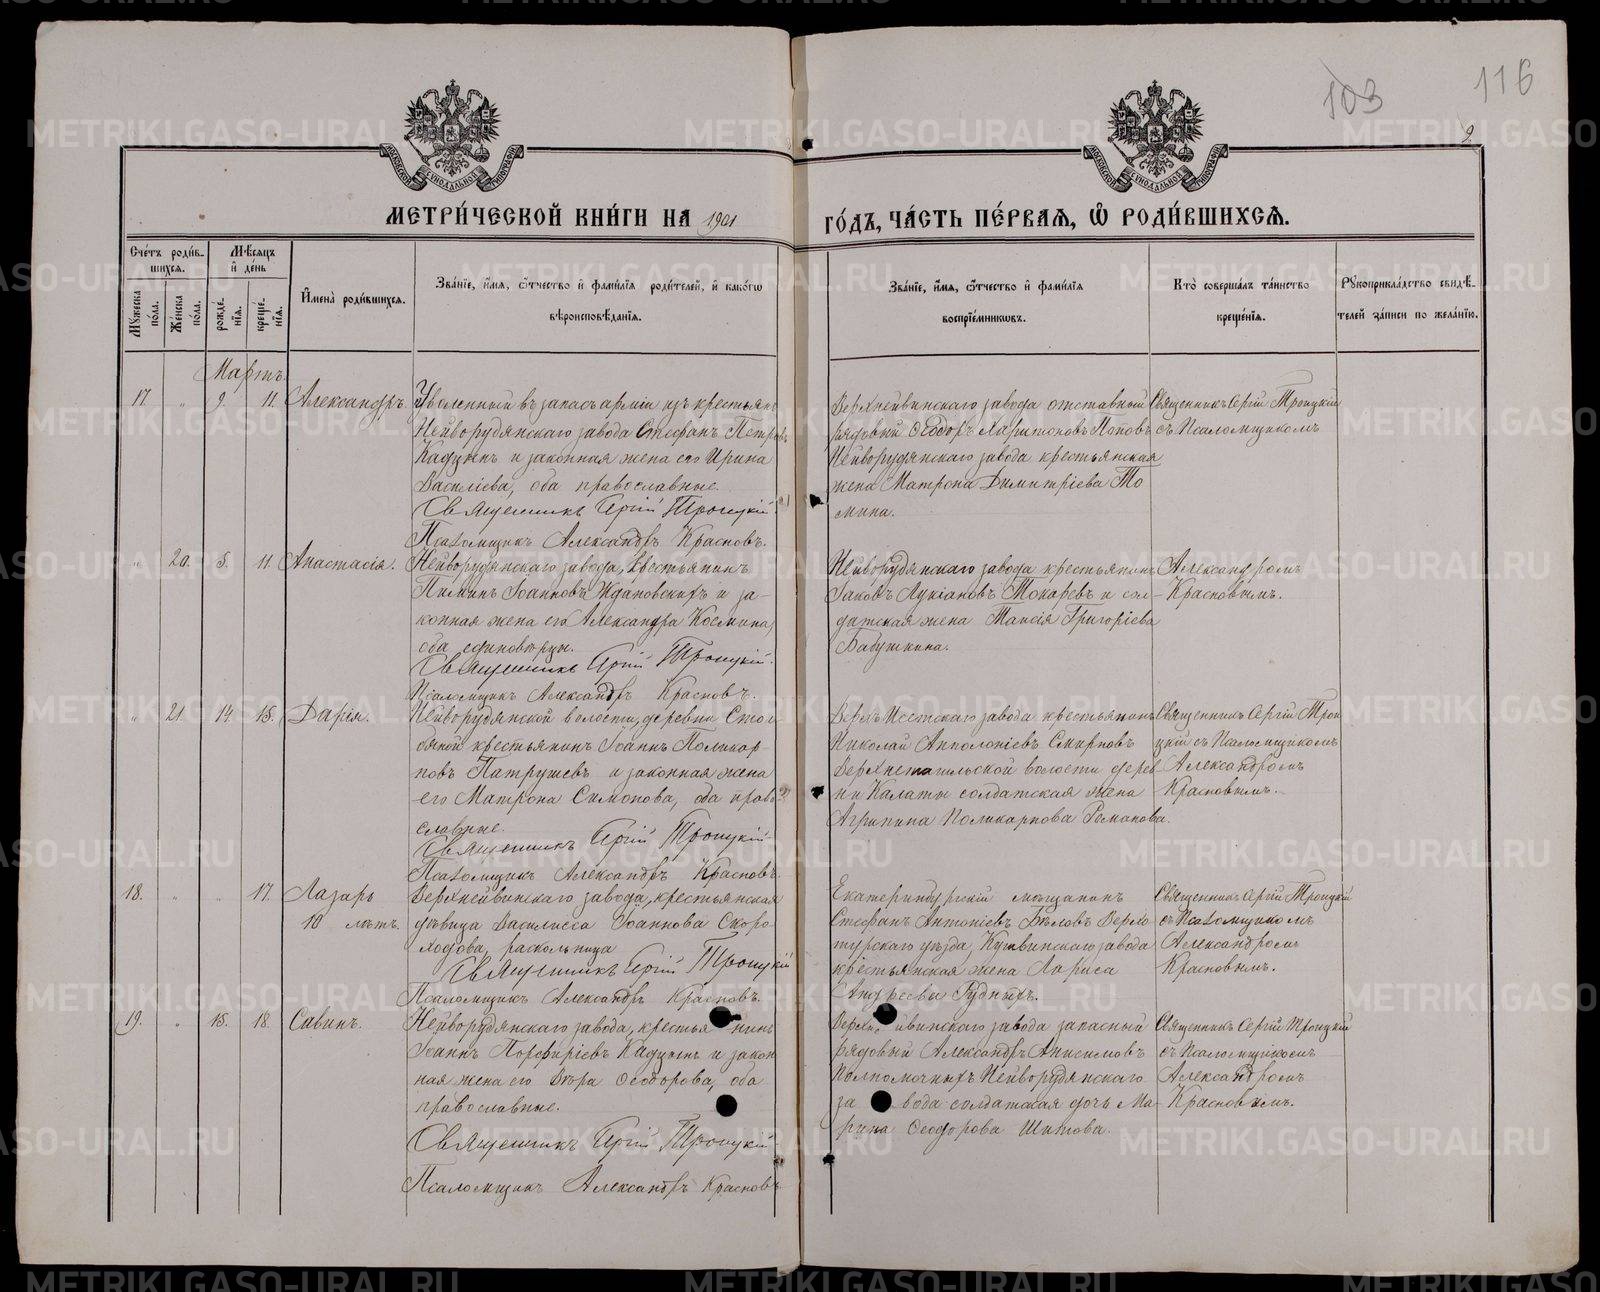 103
116
2
МЕТРИ́ЧЕСКОЙ КНИ́ГИ НА 1901
ГО́ДЪ, ЧА́СТЬ ПЕ́РВАЯ, Ѡ РОДИ́ВШИХСЯ.
Счетъ роди́в-
шихся.
Мѣсяцъ
и де́нь
Мꙋжеска по́ла.
Же́нска по́ла.
рожде́нїя.
креще́нїя.
И҆мена̀ роди́вшихся.
Зва́нїе, и҆́мя, ѻ҆́тчество и҆ фами́лїя роди́телей, и҆ како́гѡ
вѣроисповѣ́данїя.
Зва́нїе, и҆́мя, ѻ҆́тчество и҆ фами́лїя
воспрїе́мниковъ.
Кто̀ соверша́лъ та́инство
креще́нїя.
Рꙋкоприкла́дство свидѣ́-
телей за́писи по жела́нїю.
Мартъ.
17 " 9. 11. Александръ.
Уволенный въ запасъ арміи изъ крестьянъ
Нейворудянскаго завода Стефанъ Петровъ
Кадцынъ и законная жена его Ирина
Василіева, оба православные.
Священникъ Сергій Троицкій.
Псаломщикъ Александръ Красновъ.
Верхнейвинскаго завода отставный
рядовый Ѳеодоръ Харитоновъ Поповъ
Нейворудянскаго завода крестьянская
жена Матрона Димитріева То
мина.
Священникъ Сергій Троицкій
съ Псаломщикомъ
" 20. 8. 11. Анастасія.
Нейворудянскаго завода, крестьянинъ
Пименъ Іоанновъ Ждановскихъ и за-
конная жена его Александра Космина,
оба единовѣрцы.
Священникъ Сергій Троицкій.
Псаломщикъ Александръ Красновъ.
Нейворудянскаго завода крестьянинъ
Іаковъ Лукіановъ Токаревъ и сол-
датская жена Таисія Григоріева
Бабушкина.
Александромъ
Красновымъ.
" 21. 14 15. Дарія.
Нейворудянской волости, деревни Стол-
бяной крестьянинъ Іоаннъ Поликар-
повъ Патрушевъ и законная жена
его Матрона Симонова, оба право
славные.
Священникъ Сергій Троицкій
Псаломщикъ Александръ Красновъ.
Верхъ-Исетскаго завода крестьянинъ
Николай Апполоніевъ Смирновъ
Верхнетагильской волости дерев
ни Калаты солдатская жена
Агрипина Поликарпова Романова.
Священникъ Сергій Трои
цкій съ Псаломщикомъ
Александромъ
Красновымъ.
18. " " 17. Лазарь
10 лѣтъ.
Верхнейвинскаго завода, крестьянская
дѣвица Василисса Іоаннова Скоро-
ходова, раскольница
Священникъ Сергій Троицкій
Псаломщикъ Александръ Красновъ.
Екатеринбургскій мѣщанинъ
Стефанъ Антоніевъ Бѣловъ Верхо
турскаго уѣзда, Кушвинскаго завода
крестьянская жена Лариса
Андреева Рудныхъ.
Священникъ Сергій Троицкій
съ Псаломщикомъ
Александромъ
Красновымъ.
19. " 15. 18. Савинъ.
Нейворудянскаго завода, крестьянинъ
Іоаннъ Порфиріевъ Кадцынъ и закон
ная жена его Вѣра Ѳеодорова, оба
православные.
Священникъ Сергій Троицкій
Псаломщикъ Александръ Красновъ
Верхнейвинскаго завода запасный
рядовый Александръ Анисимовъ
Полномочныхъ Нейворудянскаго
завода солдатская дочь Ма-
рина Ѳеодорова Шитова.
Священникъ Сергій Троицкій
съ Псаломщикомъ
Александромъ
Красновымъ.
METRIKI.GASO-URAL.RU